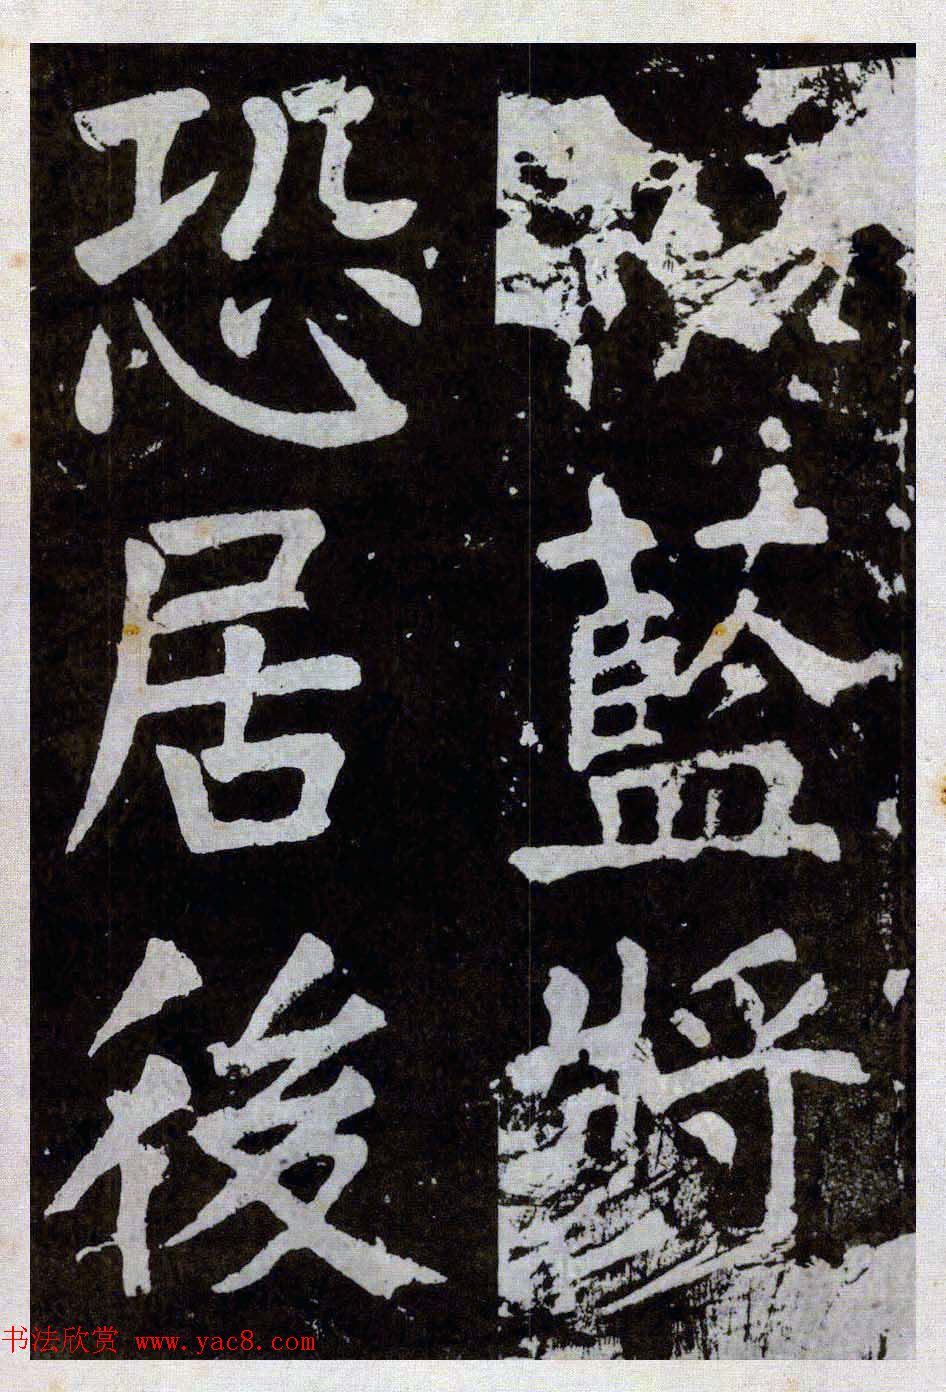 藍將
恐居後
书法欣赏 www.yac8.com